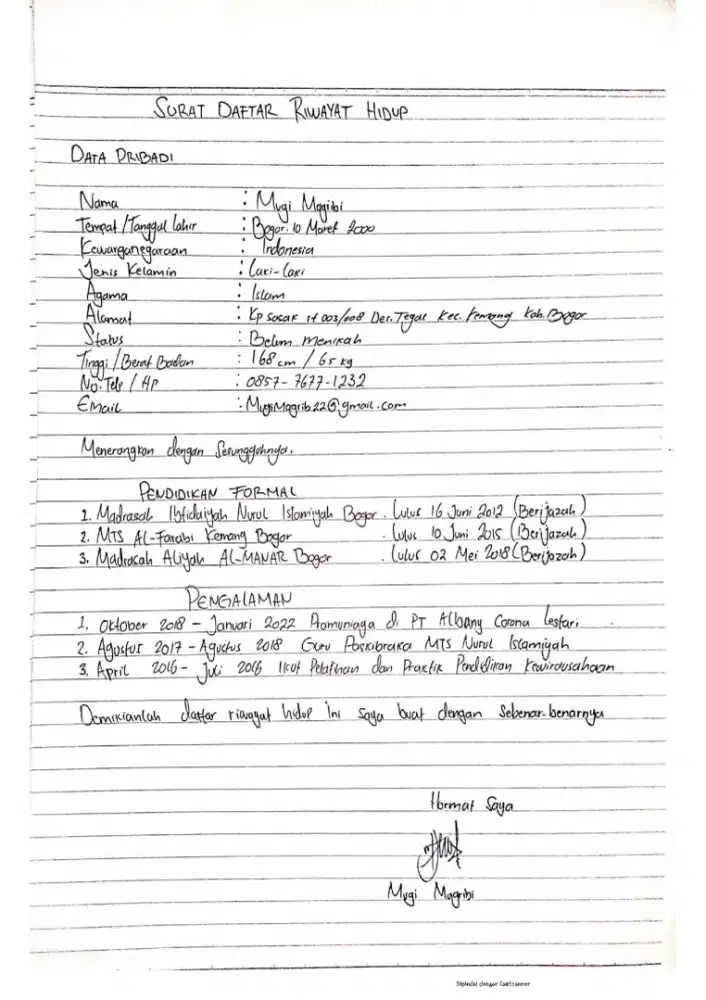 SURAT DAFTAR RIWAYAT HIDUP
DATA PRIBADI
Nama : Mugi Magribi
Tempat / Tanggal Lahir : Bogor. 10 Maret 2000
Kewarganegaraan : Indonesia
Jenis Kelamin : Laki-Laki
Agama : Islam
Alamat : Kp Sasak rt 003/008 Des. Tegal Kec. Kemang Kab. Bogor
Status : Belum menikah
Tinggi / Berat Badan : 168 cm / 65 kg
No. Telp / HP : 0857-7677-1232
Email : MugiMagrib22@gmail.com
Menerangkan dengan Sesungguhnya.
PENDIDIKAN FORMAL
1. Madrasah Ibtidaiyah Nurul Islamiyah Bogor. Lulus 16 Juni 2012 (Berijazah)
2. MTS Al-Farabi Kemang Bogor . Lulus 10 Juni 2015 (Berijazah)
3. Madrasah Aliyah AL-MANAR Bogor . Lulus 02 Mei 2018 (Berijazah)
PENGALAMAN
1. Oktober 2018 - Januari 2022 Pramuniaga di PT Albany Corona Lestari
2. Agustus 2017 - Agustus 2018 Guru Paskibraka MTS Nurul Islamiyah
3. April 2016 - Juli 2016 Ikut Pelatihan dan Praktik Pendidikan Kewirausahaan
Demikianlah daftar riwayat hidup ini saya buat dengan Sebenar-benarnya
Hormat Saya
Mugi Magribi
Dipindai dengan CamScanner